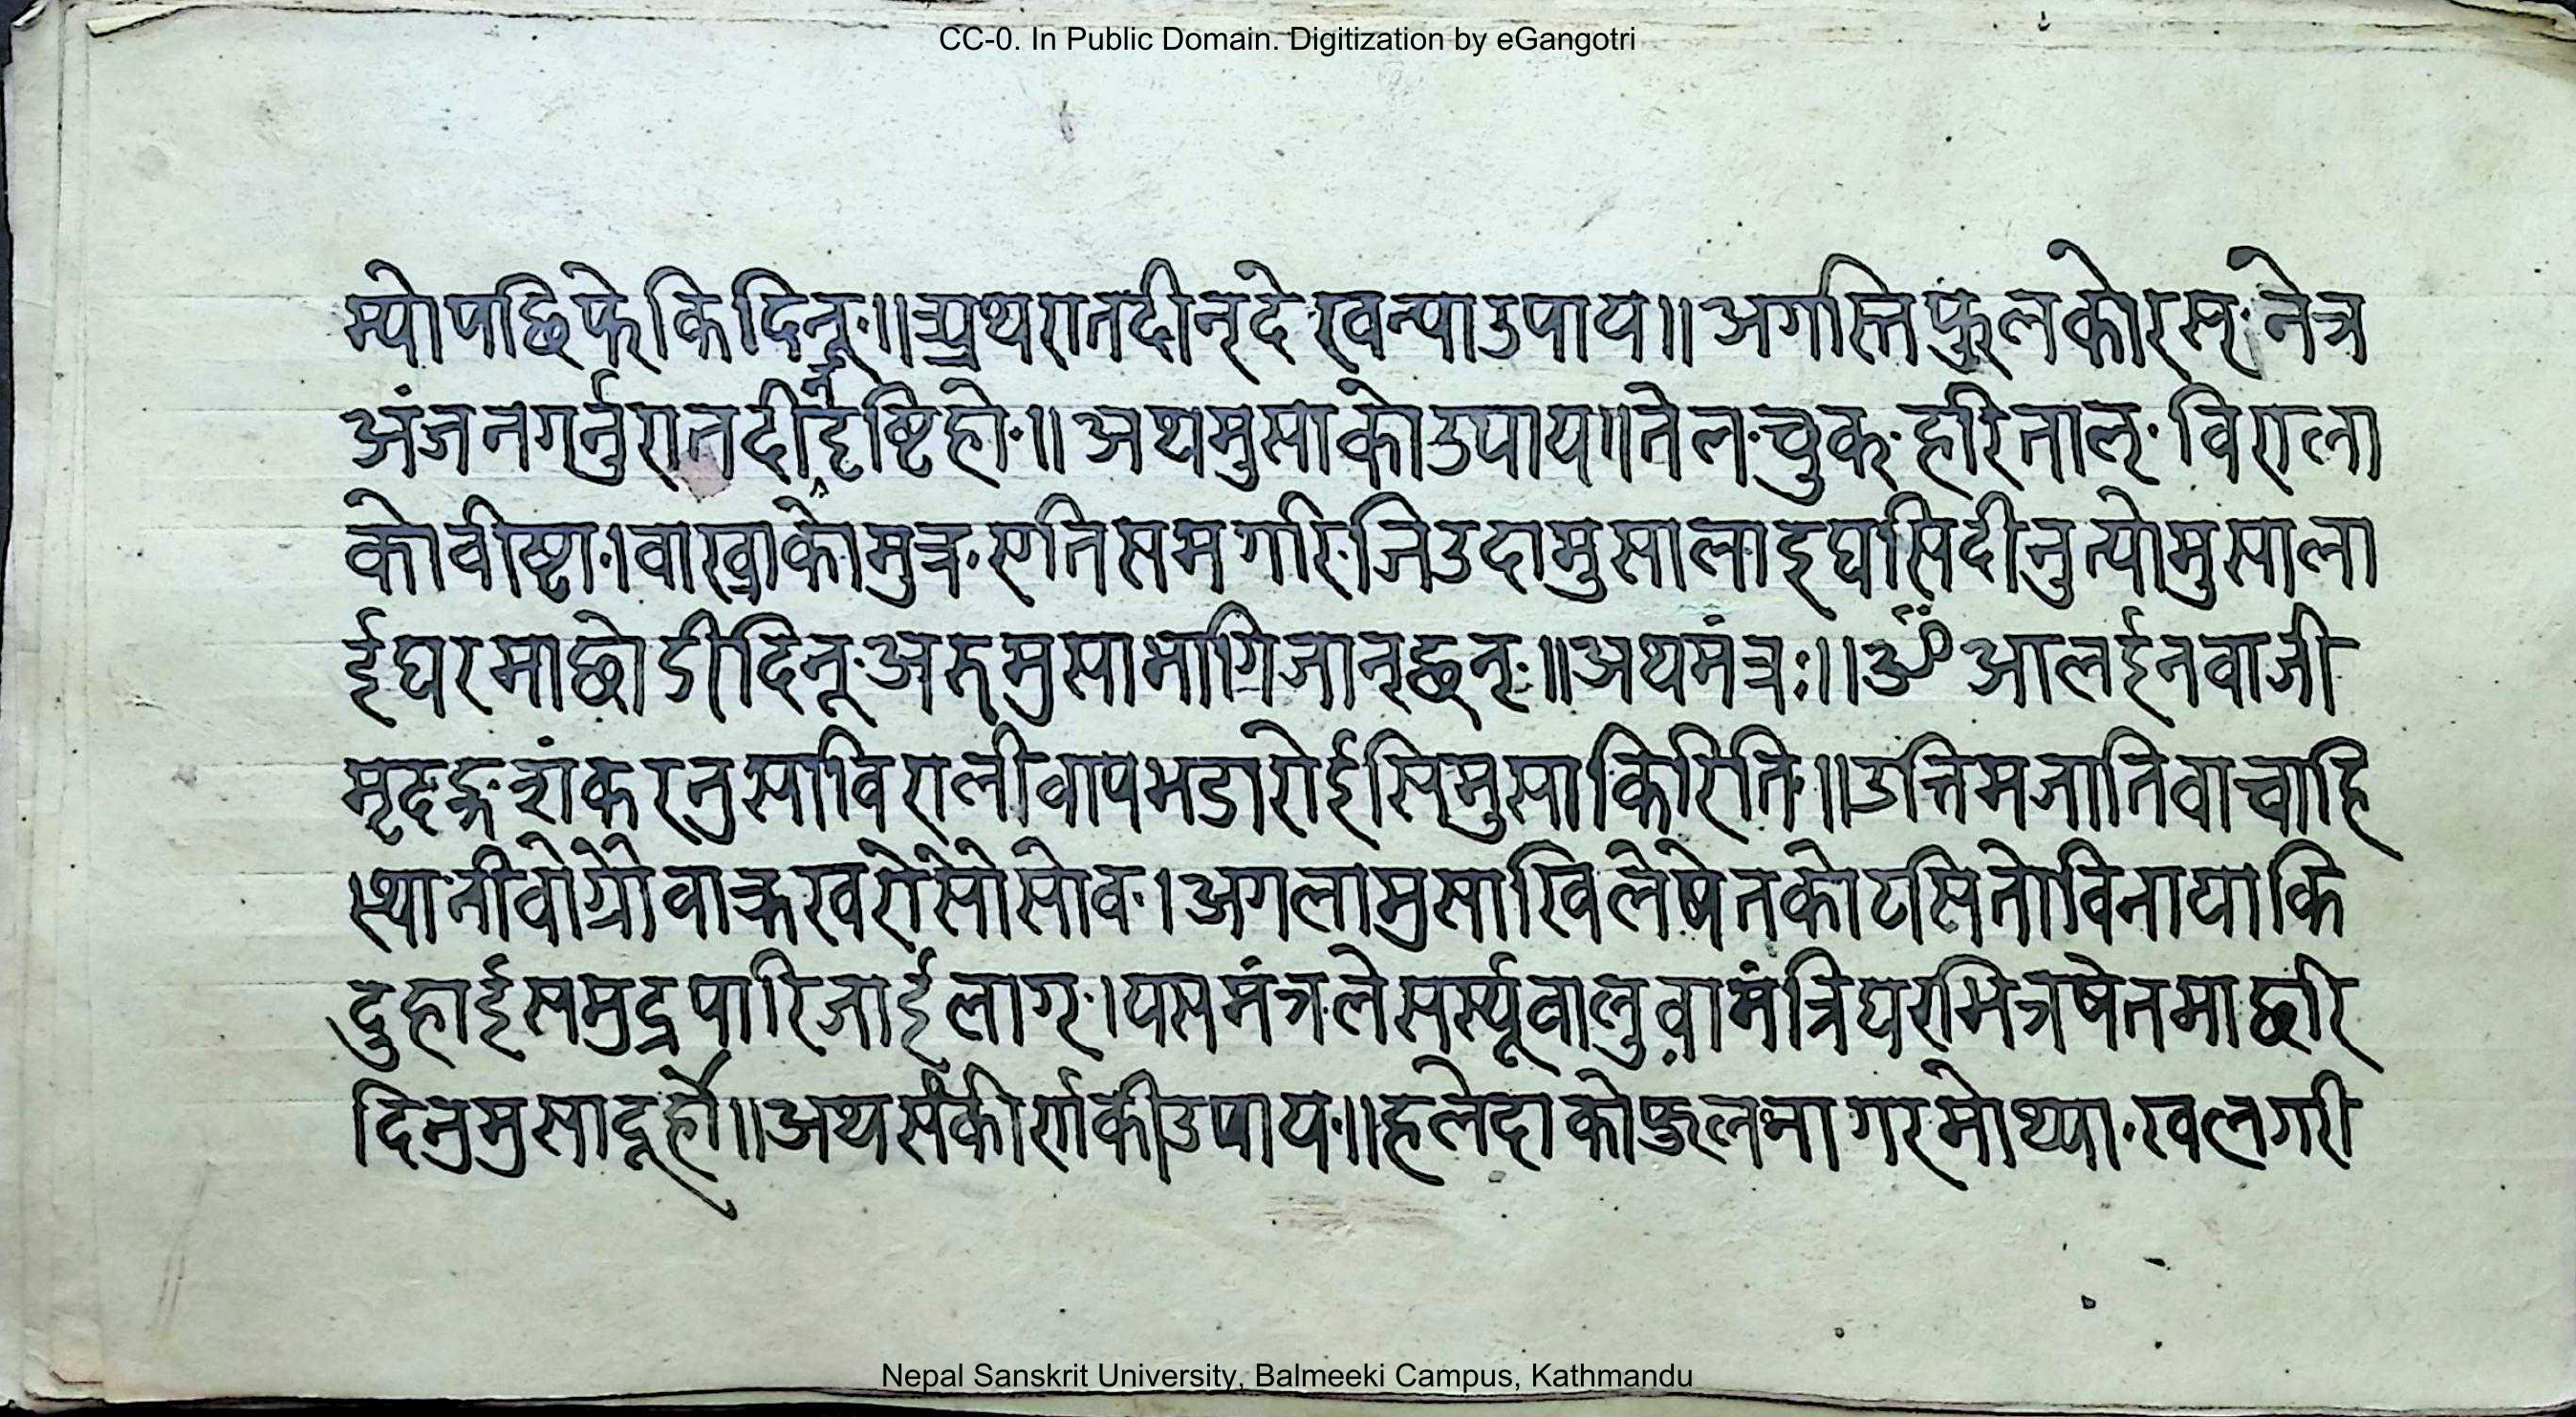 CC-0. In Public Domain. Digitization by eGangotri
म्पो पछि फेकि दिनू·॥ अथ रात दीन् देख्वन्या उपाय॥ अगस्ति फुलको रस· नेत्र
अंजन गर्नु रात दीन् दृष्टि हो·॥ अथ मुसाको उपाय॥ तेल·चुक·हरिताल्·विराला
को वीष्टा·। वाख्राको मुत्र·एति सम गरि जिउदा मुसालाइ घसि दीनु त्यो मुसाला
ई घरमा छोडी दिनू·अरु मुसा भागि जान्छन्·॥ अथ मंत्रः॥ ॐ आलईन वाजी
मृदङ्ग शंकर मुसा विराली वाप भडारोई सिमुसा किरिति·॥ उत्तिम जाति वाचाहि
दुहाई समुद्र पारि जाई लाग·। यस मंत्रले सर्स्यू वालुवा मंत्रि घर भित्र षेतमा छरि
दिनु मुसा दूर्हो॥ अथ संकीर्ण की उपाय·॥ हलेदाको फुल·नागरमोथ्या·खल गरी
Nepal Sanskrit University, Balmeeki Campus, Kathmandu